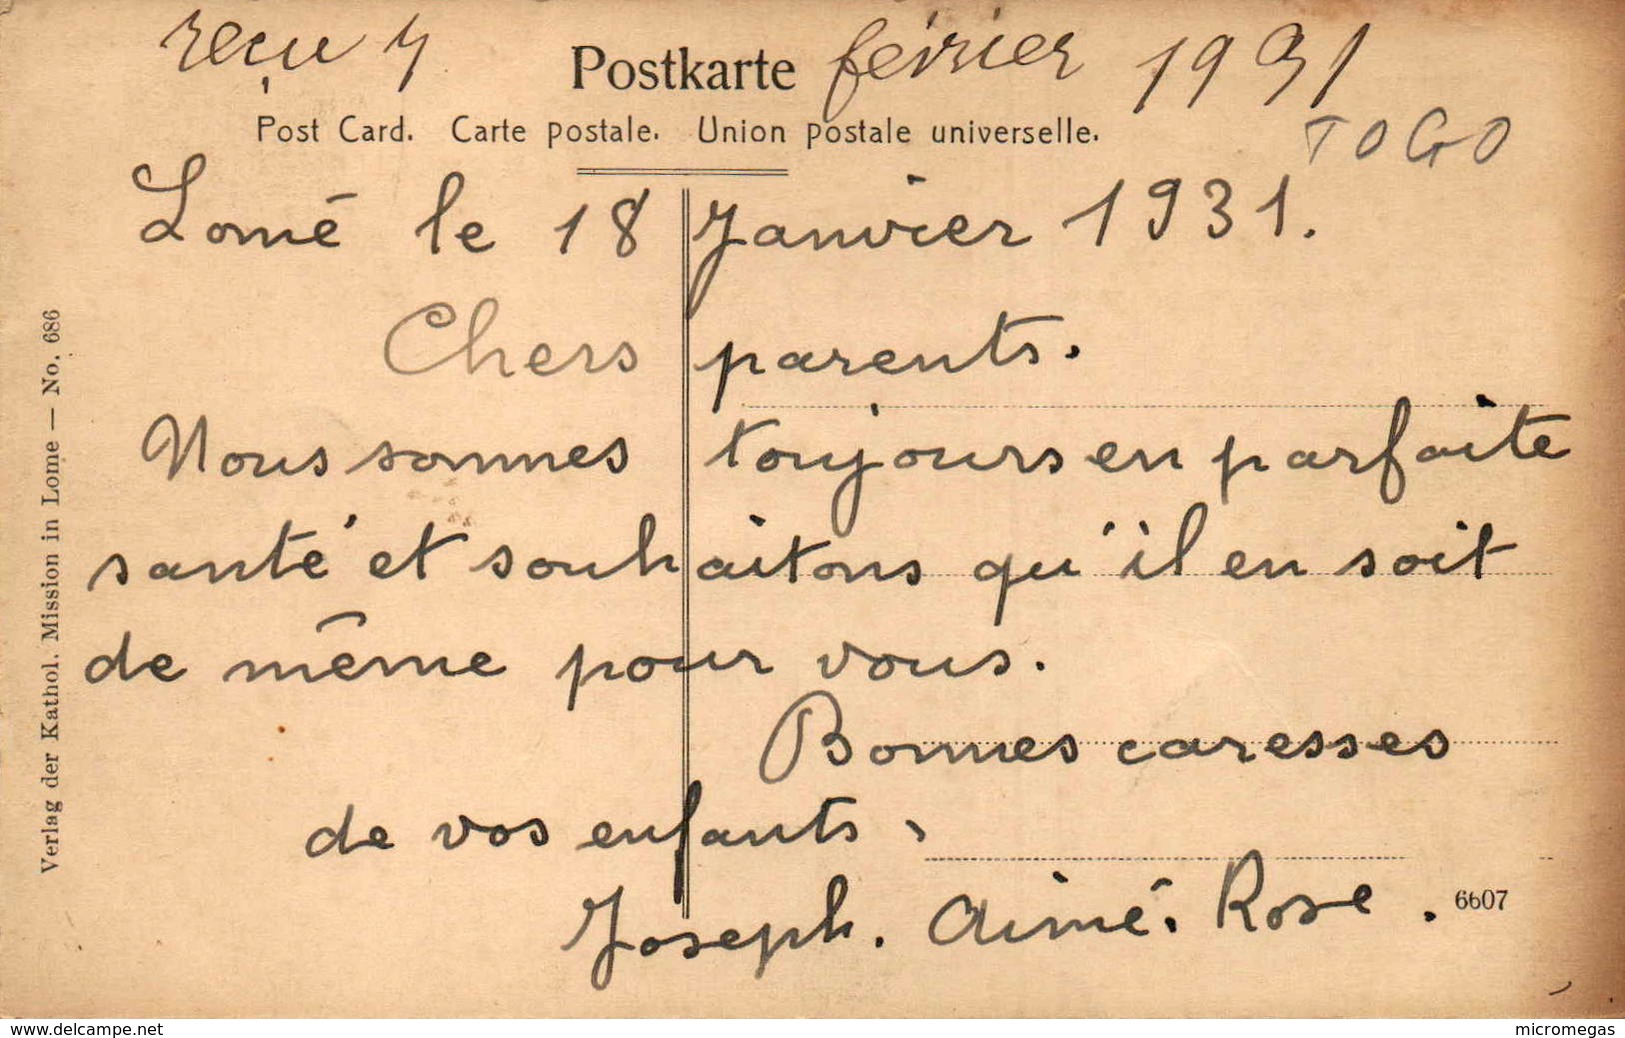 reçu 4 février 1931
Postkarte
Post Card. Carte postale. Union postale universelle.
TOGO
Lomé le 18 Janvier 1931.
Chers parents.
Nous sommes toujours en parfaite
santé et souhaitons qu'il en soit
de même pour vous.
Bonnes caresses
de vos enfants.
Joseph. Aimé. Rose.
6607
Verlag der Kathol. Mission in Lome — No. 686
www.delcampe.net
micromegas